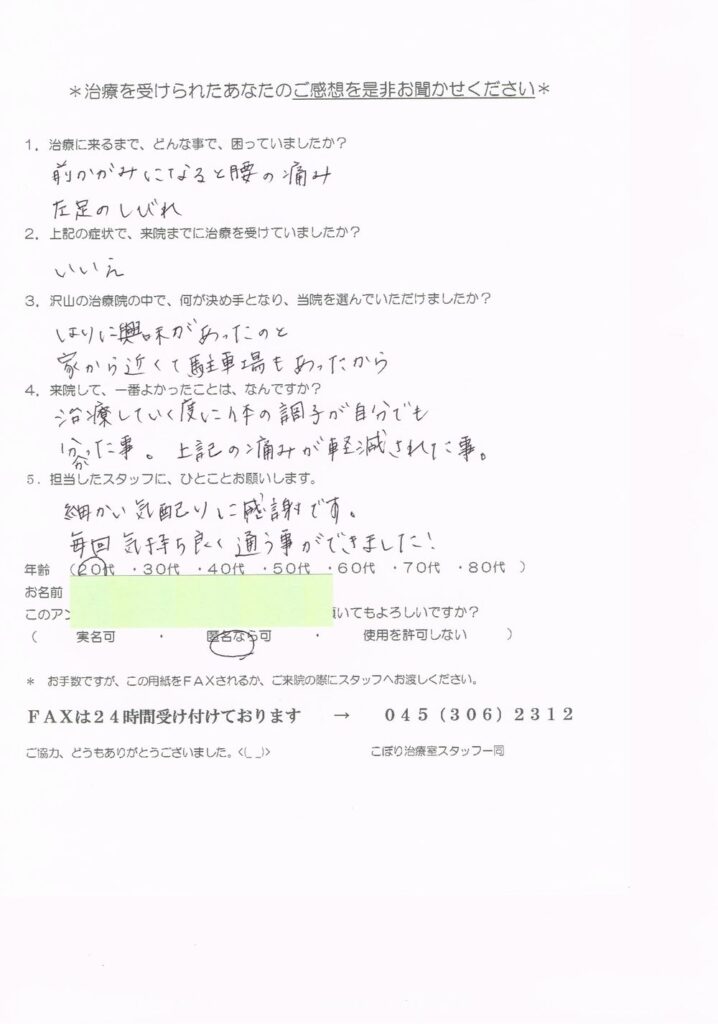 ＊治療を受けられたあなたのご感想を是非お聞かせください＊
1．治療に来るまで、どんな事で、困っていましたか？
前かがみになると腰の痛み
左足のしびれ
2．上記の症状で、来院までに治療を受けていましたか？
いいえ
3．沢山の治療院の中で、何が決め手となり、当院を選んでいただけましたか？
はりに興味があったのと
家から近くて駐車場もあったから
4．来院して、一番よかったことは、なんですか？
治療していく度に体の調子が自分でも
分かった事。上記の痛みが軽減された事。
5．担当したスタッフに、ひとことお願いします。
細かい気配りに感謝です。
毎回気持ち良く通う事ができました！
年齢 （20代 ・30代 ・40代 ・50代 ・60代 ・70代 ・80代 ）
お名前
このアン 頂いてもよろしいですか？
（ 実名可 ・ 匿名なら可 ・ 使用を許可しない ）
＊ お手数ですが、この用紙をFAXされるか、ご来院の際にスタッフへお渡しください。
FAXは24時間受け付けております → 045（306）2312
ご協力、どうもありがとうございました。<(_ _)> こぼり治療室スタッフ一同